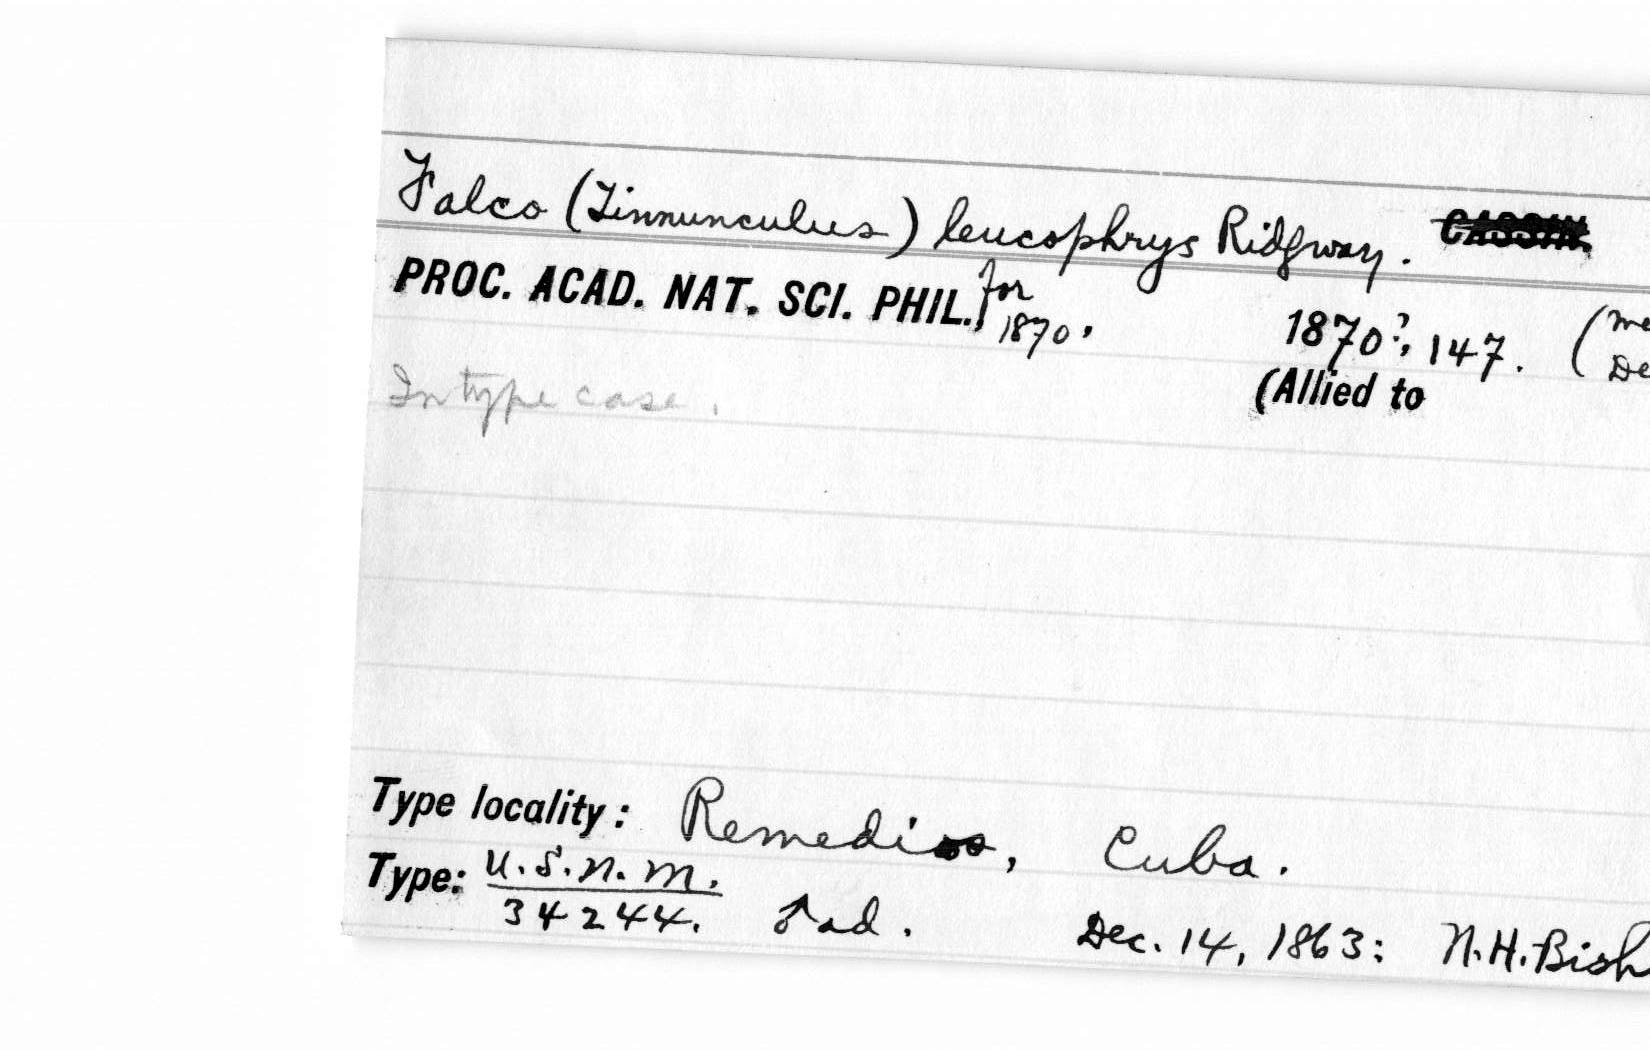 Falco (Tinnunculus) leucophrys Ridgway. CASSIN.
PROC. ACAD. NAT. SCI. PHIL., for 1870, 1870?, 147. (
(Allied to
In type case.
Type locality: Remedios, Cuba.
Type: U.S.N.M. 34244. ♂ ad. Dec. 14, 1863: N.H. Bish